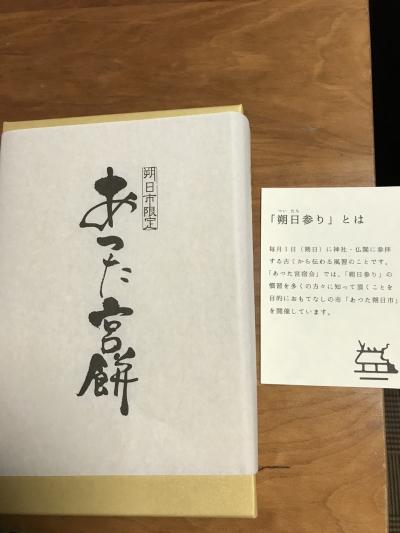 朔日市限定
あつた宮餅
ついたち
「朔日参り」とは
毎月1日（朔日）に神社・仏閣に参拝
する古くから伝わる風習のことです。
「あつた宮宿会」では、「朔日参り」の
慣習を多くの方々に知って頂くことを
目的におもてなしの市「あつた朔日市」
を開催しています。